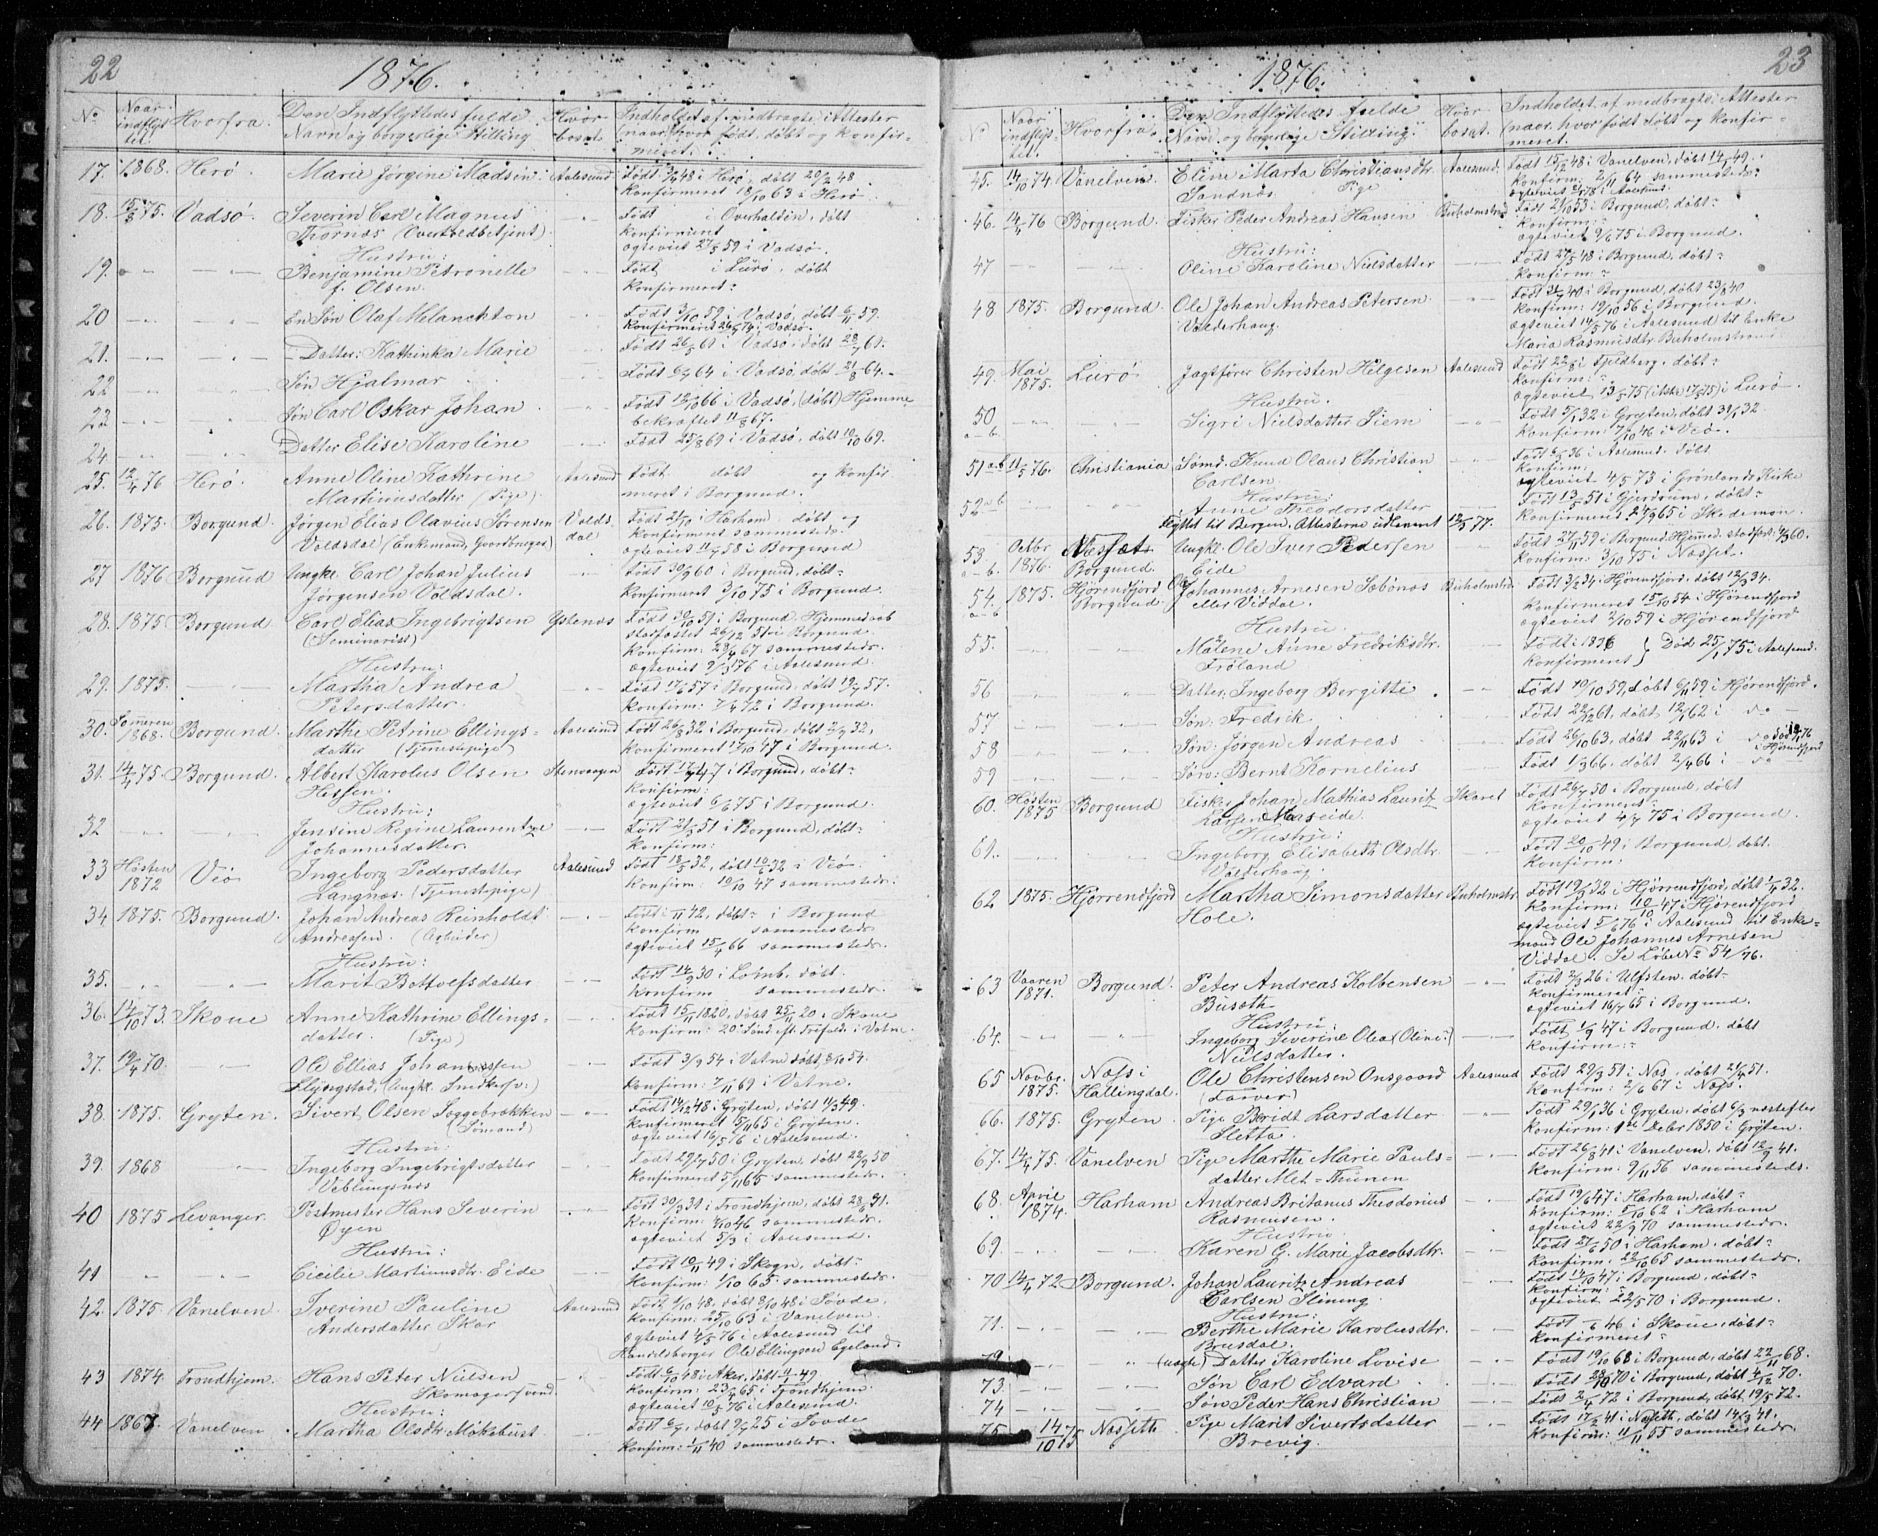 22
1876.
No
Naar indflyt tet.
Hvorfra.
Den Indflyttedes fulde
Navn og borgerlige Stilling
Hvor bosat.
Indholdet af medbragte Attester
(naar, hvor født, døbt og konfir-
meret.
17. 1868. Herø Marie Jørgine Madsen Aalesund
Født 48 i Herø, døbt 20/2 48
Konfirmeret 18/10 63 i Herø
18. 75. Vadsø. Severin Carl Magnus
Thornæs (Overtoldbetjent)
Født i Overhalden, døbt
Konfirmeret
ægteviet 27/5 59 i Vadsø
Hustru:
19. Benjamine Petronelle
f. Olsen.
Født i Lurø, døbt
Konfirmeret:
20 En Søn Olaf Melanckton
Født 3/10 59 i Vadsø, døbt 6/11 59.
Konfirmeret 26/ 74 i Vadsø.
21. Datter: Kathinka Marie
Født 26/5 61 i Vadsø, døbt 28/ 61.
22 Søn Hjalmar
Født 64 i Vadsø, døbt 21/8 64.
23 Søn Carl Oskar Johan
Født 12/10 66 i Vadsø, (døbt) Hjemme
bekræftet 11/8 67.
24 Datter Elise Karoline
Født 25/8 69 i Vadsø, døbt 10/10 69.
25. 12/4 76 Herø Anne Oline Kathrine
Martinusdatter (Pige)
Aalesund
Født døbt og konfir
meret i Borgund.
26. 1875. Borgund. Jørgen Elias Olavius Sørensen
Voldsdal (Enkemand, Gaardbruger)
Volds
dal
Født 21/10 i Harham, døbt og
konfirmeret sammesteds.
ægteviet 11/ 58 i Borgund
27 1876 Borgund Ungk. Carl Johan Julius
Jørgensen Voldsdal.
Født 30/9 60 i Borgund, døbt-
Konfirmeret 3/10 75 i Borgund.
28. 1875 Borgund Carl Elias Ingebrigtsen
(Seminarist)
Ystenæs
Født 30/10 51 i Borgund Hjemmedaab
stadfæstet 26/12 51 i Borgund
Konfirm: 28/4 67 sammesteds.
ægteviet 9/ 76 i Aalesund.
Hustru:
29. 1875. Martha Andrea
Petersdatter.
Født 17/6 57 i Borgund, døbt 19/7 57.
Konfirm: 7/4 72 i Borgund.
30. Sommeren 1868. Borgund. Marthe Petrine Ellings-
datter (Tjenestepige)
Aalesund
Født 26/8 32 i Borgund, døbt 2/9 32,
Konfirmeret 17/10 47 i Borgund.
31. 14/4 75 Borgund. Albert Karolus Olsen
Hessen.
Stenvaagen
Født 17/ 47 i Borgund, døbt-
Konfirm:
ægteviet 6/6 75 i Borgund
Hustru:
32 Jensine Regine Laurentze
Johannesdatter
Født 21/5 51 i Borgund, døbt-
Konfirm:
33 Høsten 1872 Veø Ingeborg Pedersdatter
Langnæs (Tjenestepige)
Aalesund
Født 18/5 32, døbt 10/6 32 i Veø
Konfirm: 10/10 47 sammesteds.
34 1875. Borgund. Johan Andreas Reinholdt
Andressen. (Arbeider)
Født 11 42, døbt- i Borgund
Konfirm sammesteds.
ægteviet 15/4 66 sammesteds.
Hustru:
35. Marit Bottolfsdatter
Født 14/9 30 i Lomb, døbt.
Konfirm sammesteds.
36. 14/10 73. Skoue Anne Kathrine Ellings-
datter. (Pige)
Født 15/11 1820, døbt 25/11 20 i Skoue
Konfirm: 20 Sønd. eft. Trefold. i Vatne.
37. 19/4 70. Ole Ellias Johannessen
Slyngstad, (Ungk. Snedkersv:)
Født 3/9 54 i Vatne døbt 8/10 54.
Konfirm: 7/11 69 i Vatne.
38. 1875. Gryten. Sivert Olsen Soggebrækken
(Sømand)
Født 14/12 48 i Gryten, døbt 11/3 49.
Konfirmeret 5/11 65 i Gryten.
ægteviet 16/5 76 i Aalesund.
Hustru:
39. 1868 Ingeborg Ingebrigtsdatter
Veblungsnæs
Født 29/7 50 i Gryten, døbt 22/9 50
Konfirmeret 5/11 65 sammesteds.
40 1875 Levanger. Postmester Hans Severin
Øyen
Født 30/3 31 i Trondhjem, døbt 28/6 31.
Konfirm: /10 46 sammesteds.
ægteviet 5/3 i Aalesund.
Hustru:
41 Cicilie Martinusdtr. Eide
Født 10/11 49 i Skogn, døbt-
Konfirm: 1/10 65. sammesteds.
42. 1875. Vanelven. Iverine Pauline
Andersdatter Skor
Aalesund
Født 1/10 48. døbt 8/10 48 i Søvde
Konfirm: 25/10 63 i Vanelven
ægteviet 4/5 76 i Aalesund til
Handelsborger Ole Ellingsen Egeland.
43 1874. Trondhjem. Hans Peter Nielsen
Skomagersvend.
Født 6/10 48 i Aker, døbt 49
Konfirm: 23/4 65 i Trondhjem
ægteviet 10/5 76 i Aalesund.
Hustru:
44 1867. Vanelven Martha Olsdtr. Møkebust
Født døbt 9/ 25 i Søvde
Konfirm: 1/11 40 sammesteds.
23
1876.
No
Naar indflyt tet.
Hvorfra.
Den Indflyttedes fulde
Navn og borgerlige Stilling.
Hvor bosat.
Indholdet af medbragte Attester
(naar, hvor født døbt og konfir-
meret.
45. 14/10 74. Vanelven. Eline Marta Christiansdtr.
Sandnæs. Pige
Aalesund.
Født 15/12 48 i Vanelven, døbt 14/1 49.
Konfirm: 2/11 64 sammesteds.
ægteviet 78 i Aalesund.
46. 14/4 76 Borgund. Fisker Peder Andreas Hansen Buholmstrd.
Født 21/10 53 i Borgund, døbt-
Konfirm:
ægteviet 9/6 75 i Borgund.
Hustru:
47 Oline Karoline Nielsdatter
Født 27/5 48 i Borgund, døbt-
Konfirm:-
48 1875. Borgund. Ole Johan Andreas Petersen
Valderhaug.
Født 40 i Borgund, døbt 23/ 40
Konfirm: 12/10 56 i Borgund
ægteviet 14/5 76 i Aalesund til Enke
Maria Rasmusdtr. Buholmstrand
49. Mai 1875. Lurø. Jagtfører Christen Helgesen Aalesund
Født 22/ i Fjeldberg, døbt-
Konfirm:
ægteviet 13/5 75 i Lurø.
Hustru.
50 a-b. Sigri Nielsdatter Siem
Født 5/1 32 i Gryten, døbt 31/ 32
Konfirm: 7/10 46 i Veø.
51 ab 11/5 76. Christiania Sømd. Knud Olaus Christian
Carlsen
Født 36 i Aalesund. døbt
Konfirm.
ægteviet 4/5 73 i Grønlands Kirke
Hustru:
52 ab Anne Theodorsdatter
Født 13/5 51 i Gjerdrum, døbt-
Konfirmeret 24/9 65 i Skedsmon.
Flyttet til Bergen, Attesterne udleveret 12/5 77.
53 a-b. Octbr 1876. Næsset Borgund. Ungk: Ole Iver Pedersen
Eide
Født 27/11 59 i Borgund, Hjemmed. stadfæst. 60.
Konfirm: 3/10 75 i Næsset.
54. a-b 1875. Hjørendfjord Borgund Ole Johannes Arnesen Sæbønæs
eller Viddal.
Buholmstrd.
Født 3/2 34 i Hjørundfjord, døbt 12/ 34.
Konfirmeret 15/10 54 i Hjørendfjord
ægteviet 2/10 59 i Hjørendfjord
Hustru:
55. Malene Anne Fredriksdtr.
Frøland
Født i 1836
Konfirmeret
Død 25/1 75 i Aalesund.
56 Datter, Ingeborg Bergitte
Født 10/10 59, døbt 6/11 59 i Hjørendfjord.
57 Søn: Fredrik
Født 22/12 61, døbt 12/1 62 i do -
58 Søn: Jørgen Andreas
Født 26/10 63, døbt 22/11 63 i do
i Hjørendfjord
59 Søn: Bernt Kornelius
Født 1/3 66. døbt 2/4 66 i do
60. Høsten 1875 Borgund Fisker Johan Mathias Lauritz
Larsen Marseide.
Skaret
Født 26/ 50 i Borgund, døbt
Konfirmeret:
ægteviet 4/7 75 i Borgund.
Hustru:
61. Ingeborg Elisabeth Olsdtr.
Valderhaug.
Født 20/10 49 i Borgund, døbt.
Konfirm:
62 1875. Hjørrendfjord Martha Simonsdatter
Hole.
Buholmstr
Født 19/2 32 i Hjørrendfjord, døbt 32.
Konfirm: 10/10 47 i Hjørrendfjord
ægteviet 5/ 76 i Aalesund til Enke-
mand Ole Johannes Arnesen
Viddal. Se Løbe No 54/76.
63 Vaaren 1871. Borgund. Peter Andreas Kolbensen
Buseth
Født 2/3 26 i Ulfsten, døbt-
Konfirmeret-
ægteviet 16/7 65 i Borgund.
Hustru:
64. Ingeborg Severine Olea (Oline)
Nielsdatter.
Født, 1/9 47 i Borgund. døbt
Konfirm:-
65 Novbr. 1875. Næss i Hallingdal. Ole Christensen Onsgaard
(Farver)
Aalesund
Født 29/3 51 i Næs, døbt 21/4 51.
Konfirm: 2/6 67 i Næss.
66. 1875. Gryten. Pige Beridt Larsdatter
Sletta.
Født 29/1 36 i Gryten, døbt 6/3 næstefter
Konfirm: 1ste Debr 1850 i Gryten.
67. 14/4 75. Vanelven Pige Marthe Marie Pauls-
datter Met-Thunen
Født 26/8 41 i Vanelven, døbt 12/9 41.
Konfirm: 9/11 56 sammesteds.
68. April 1874. Harham Andreas Britanus Theodorius
Rasmussen.
Født 19/6 47 i Harham, døbt-
Konfirm: 5/10 62 i Harham
ægteviet 22/9 70 sammesteds.
Hustru
69. Karen G. Marie Jacobsdtr.
Født 27/6 50 i Harham, døbt-
Konfirm: 22/10 65 sammesteds.
70 14/4 72 Borgund. Johan Lauritz Andreas
Carlsen Slining.
Født 14/10 47 i Borgund, døbt-
Konfirm:-
ægteviet 22/5 70 i Borgund.
Hustru:
71. Berthe Marie Karolusdtr.
Brusdal.
Født 6 46 i Skoue, døbt-
Konfirmeret-
72 (uægte) Datter Karoline Lovise
Født 19/10 68 i Borgund, døbt 22/11 68.
73. Søn Carl Edvard
Født 28/10 70 i Borgund, døbt 4/12 70.
74 Søn Peder Hans Christian
Født 2/4 72 i Borgund, døbt 19/5 72.
75. 14/10 75 Næsseth. Pige Marit Sivertsdatter
Brevig.
Født 17/2 41 i Næsseth, døbt 14/3 41.
Konfirm: 11/11 55 sammesteds.